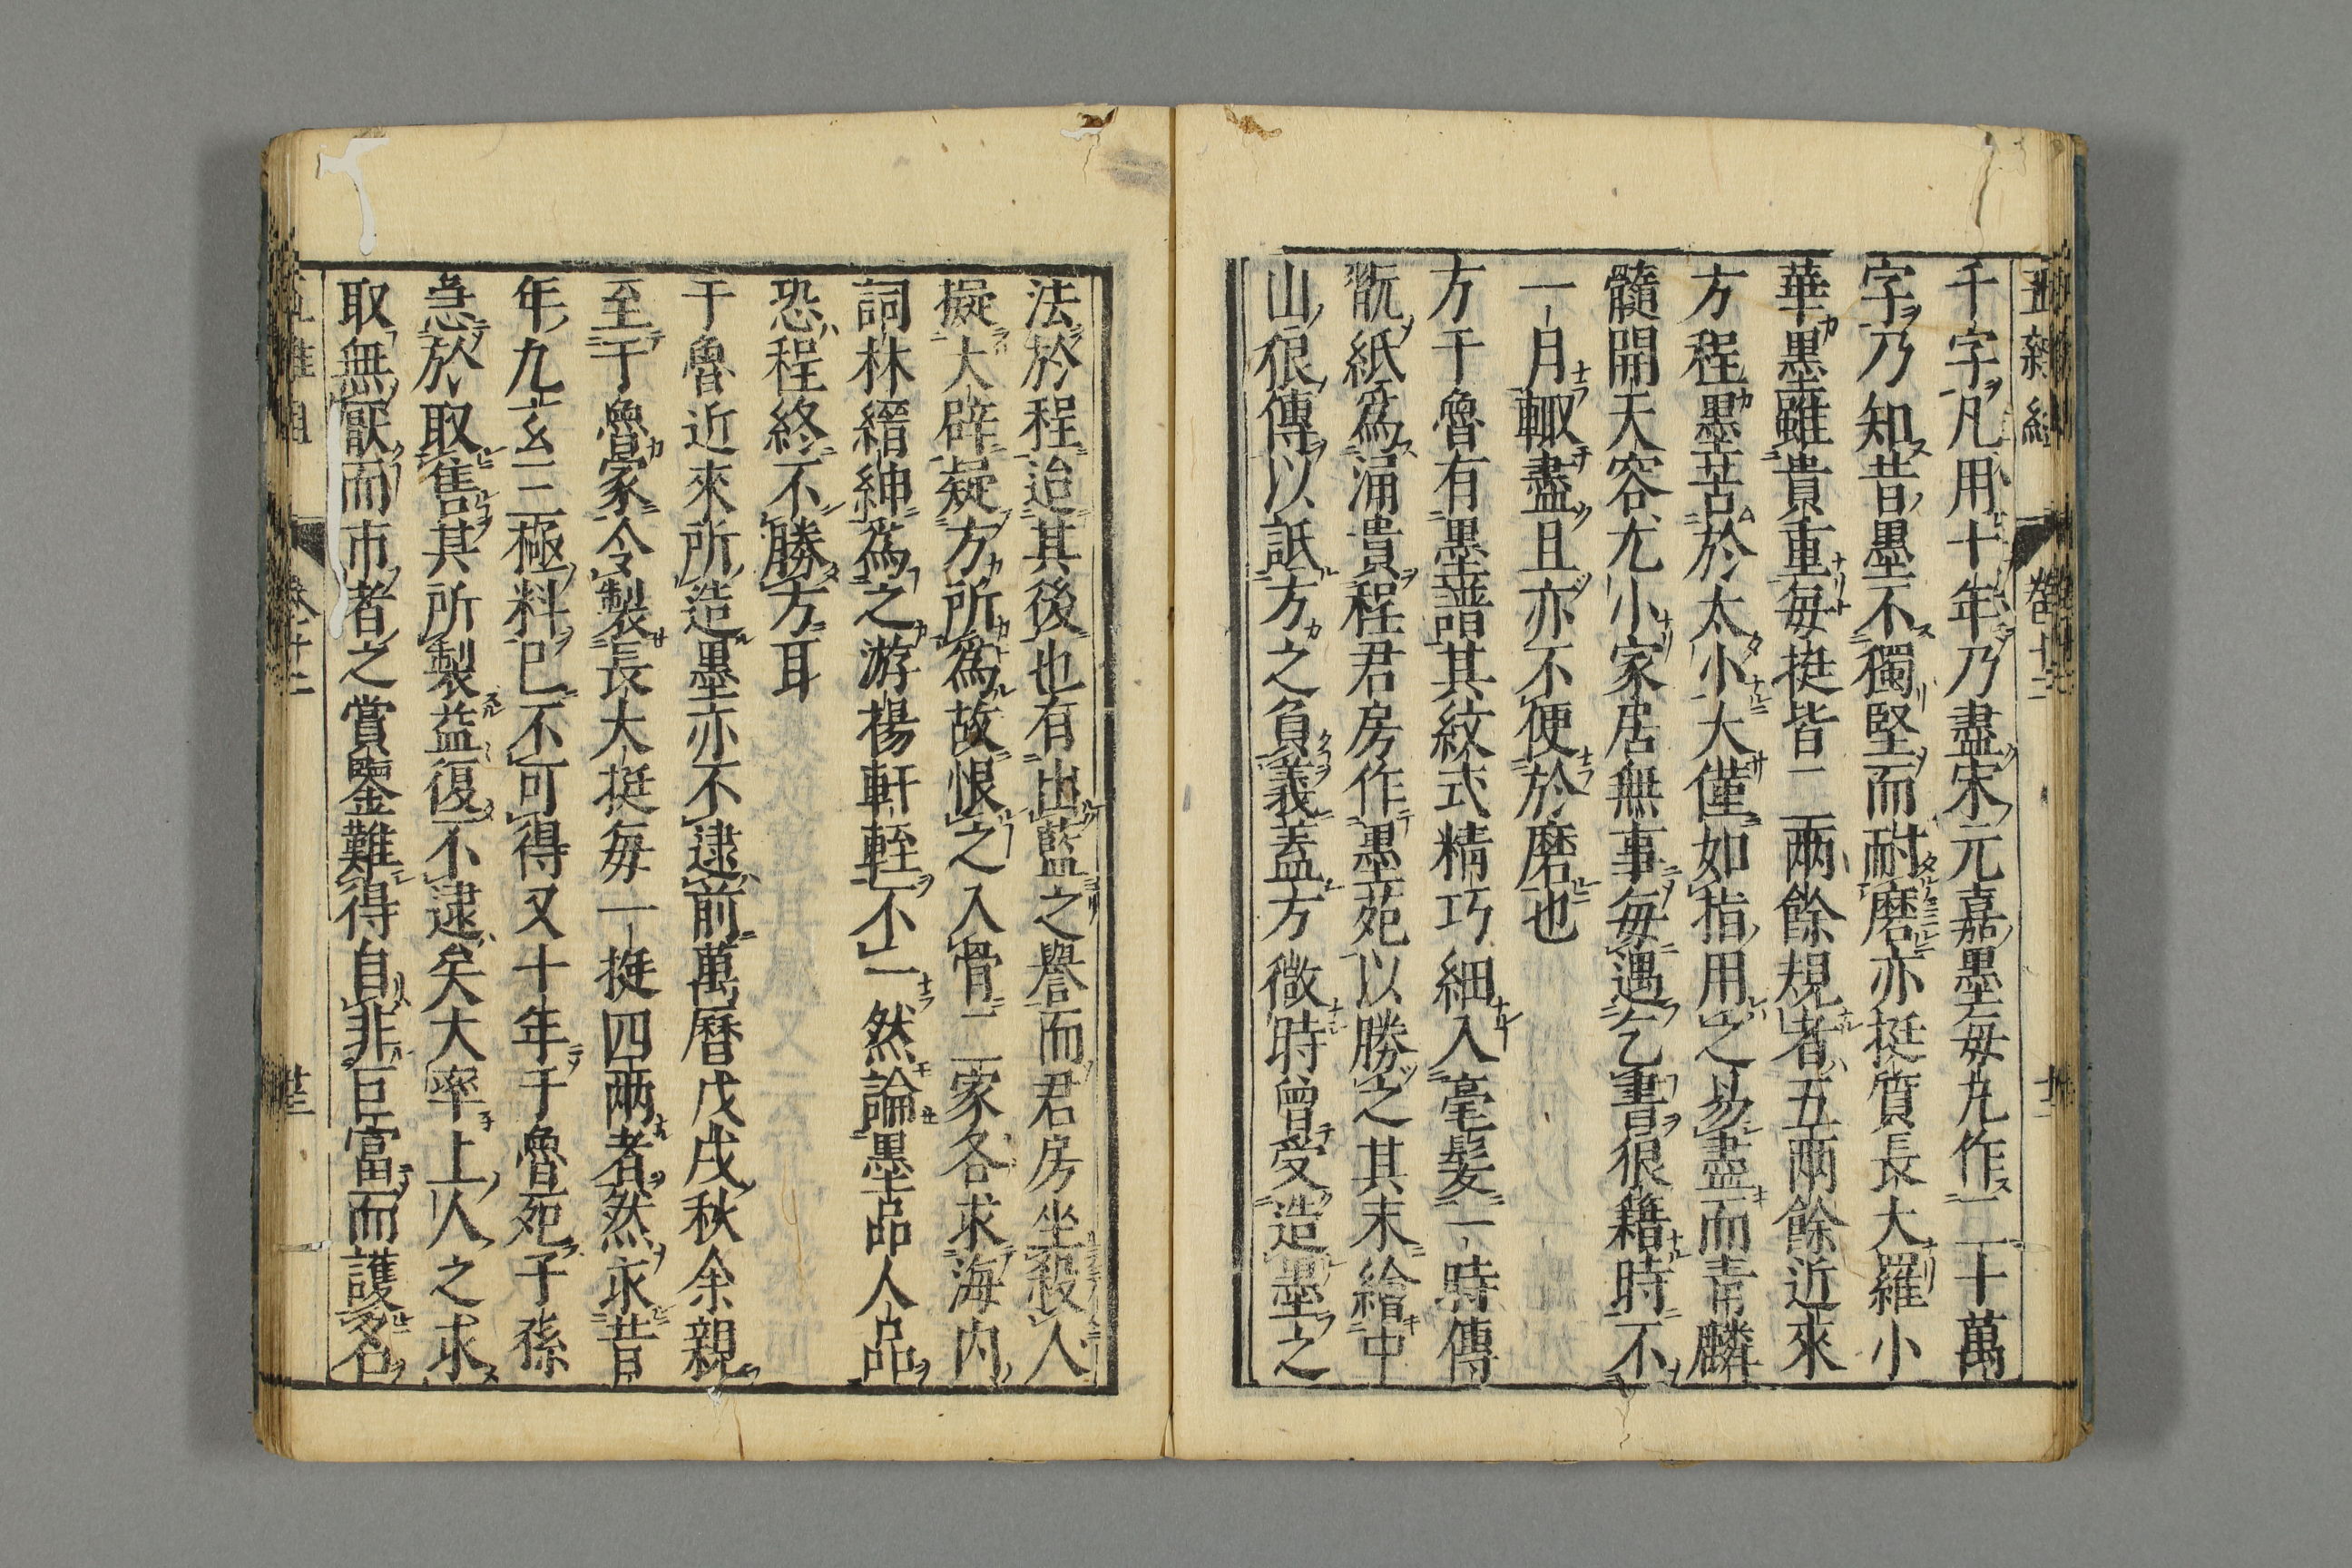 千字凡用十年乃盡宋元嘉墨每丸作二十萬
字乃知昔墨不獨堅而耐磨亦挺質長大羅小
華墨雖貴重每挺皆二兩餘規者五兩餘近來
方程墨苦於太小大僅如指用之易盡而青麟
髓開天容尤小家居無事每遇乞書狼籍時不
一月輙盡且亦不便於磨也
方于魯有墨譜其紋式精巧細入毫髮一時傳
翫紙爲涌貴程君房作墨苑以勝之其末繪中
山狼傳以詆方之負義蓋方微時曾受造墨之
法於程迨其後也有出藍之譽而君房坐殺人
擬大辟疑方所爲故恨之入骨二家各求海内
詞林縉紳爲之游揚軒輊不一然論墨品人品
恐程終不勝方耳
于魯近來所造墨亦不逮前萬曆戊戌秋余親
至于魯家令製長大挺每一挺四兩者然求昔
年九玄三極料已不可得又十年于魯死子孫
急於取售其所製益復不逮矣大率上人之求
取無厭而市者之賞鑒難得自非巨富而護名
五雜組
卷十二